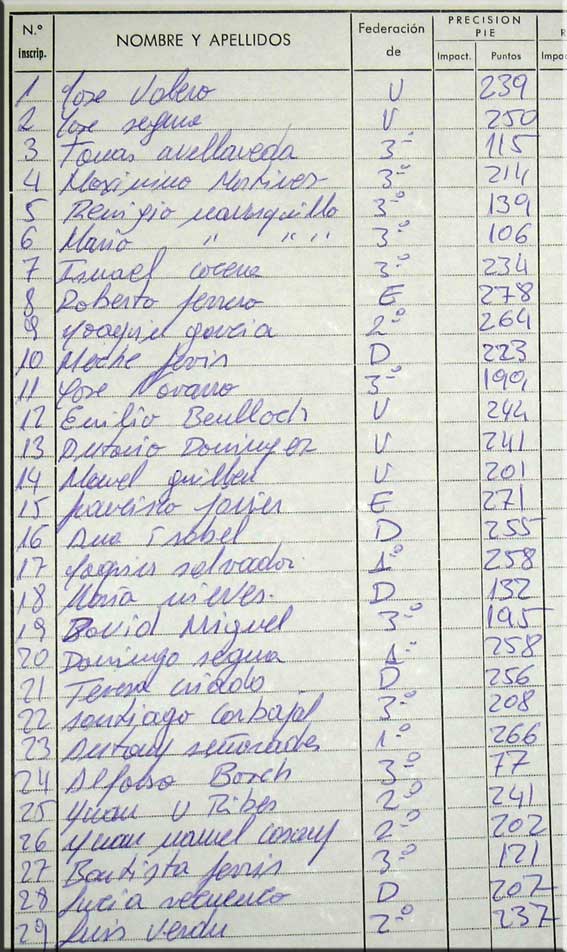 N.º Inscrip. NOMBRE Y APELLIDOS Federación de PRECISION PIE Impact. Puntos R Impac
1 Jose Valero V 239
2 Jose segura V 250
3 Tomas avellaneda 3-º 115
4 Maximino Martinez 3-º 214
5 Remigio 3-º 139
6 Mario " " " 3-º 106
7 Ismael cocera 3-º 234
8 Roberto ferrero E 278
9 Joaquin garcia 2-º 264
10 D 223
11 Jose Navarro 3-º 190
12 Emilio Benlloch V 244
13 Antonio Dominguez V 241
14 Manuel guillen V 201
15 francisco E 271
16 Ana Isabel D 255
17 Joaquin salvador 1-º 258
18 Maria nieves. D 132
19 David Miguel 3-º 195
20 Domingo segura 1-º 258
21 Teresa criado D 256
22 santiago Carbajal 3-º 208
23 Antony 1-º 266
24 Alfonso Bosch 3-º 77
25 Juan V Ribes 2-º 241
26 Juan manuel 2-º 202
27 Bautista ferris 3-º 121
28 Lucia recuenco D 207
29 Luis Verdu 2-º 237